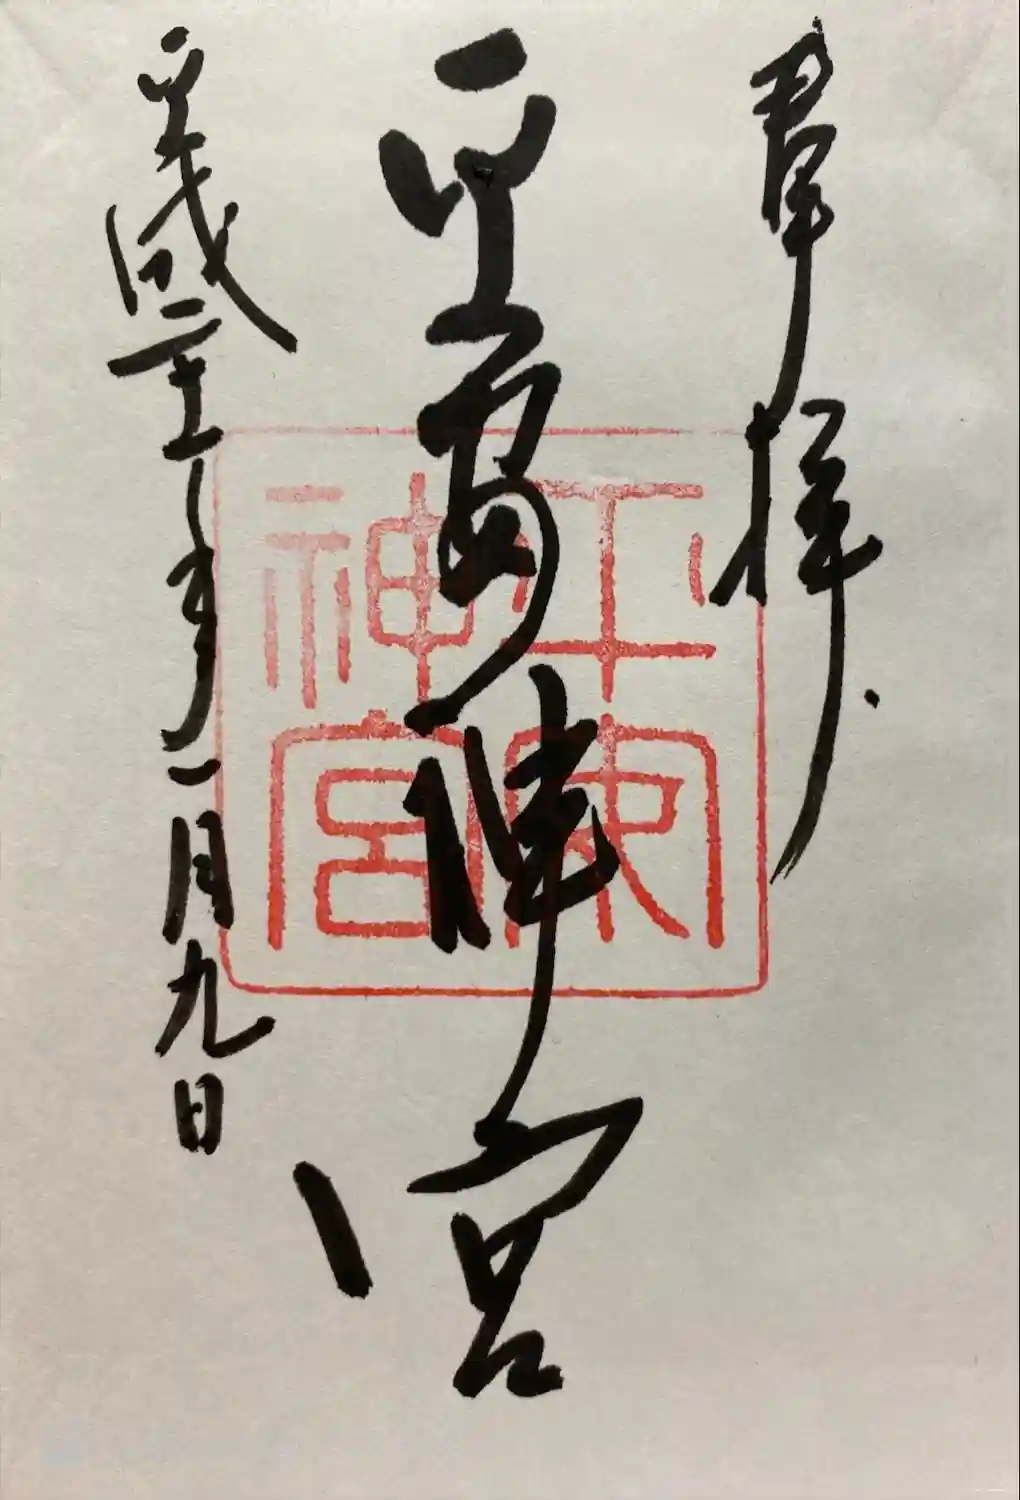 奉拝
平安神宮
平安神宮
平成 年一月九日